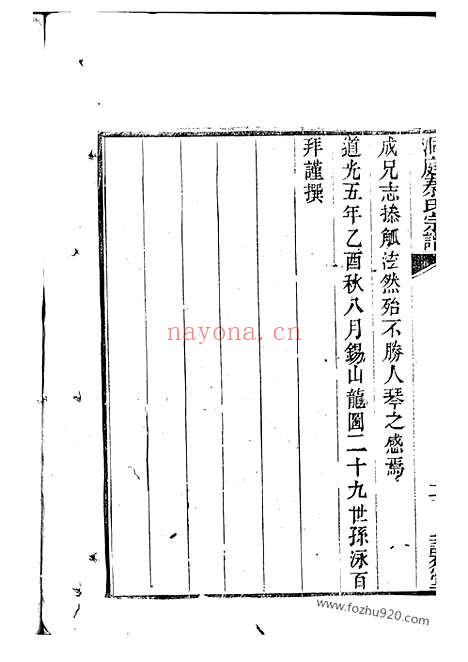 洞庭秦氏宗譜
成兄志捺觚泫然殆不勝人琴之感焉
道光五年乙酉秋八月錫山龍圖二十九世孫泳百
拜謹撰
nayona.cn
www.fozhu920.com